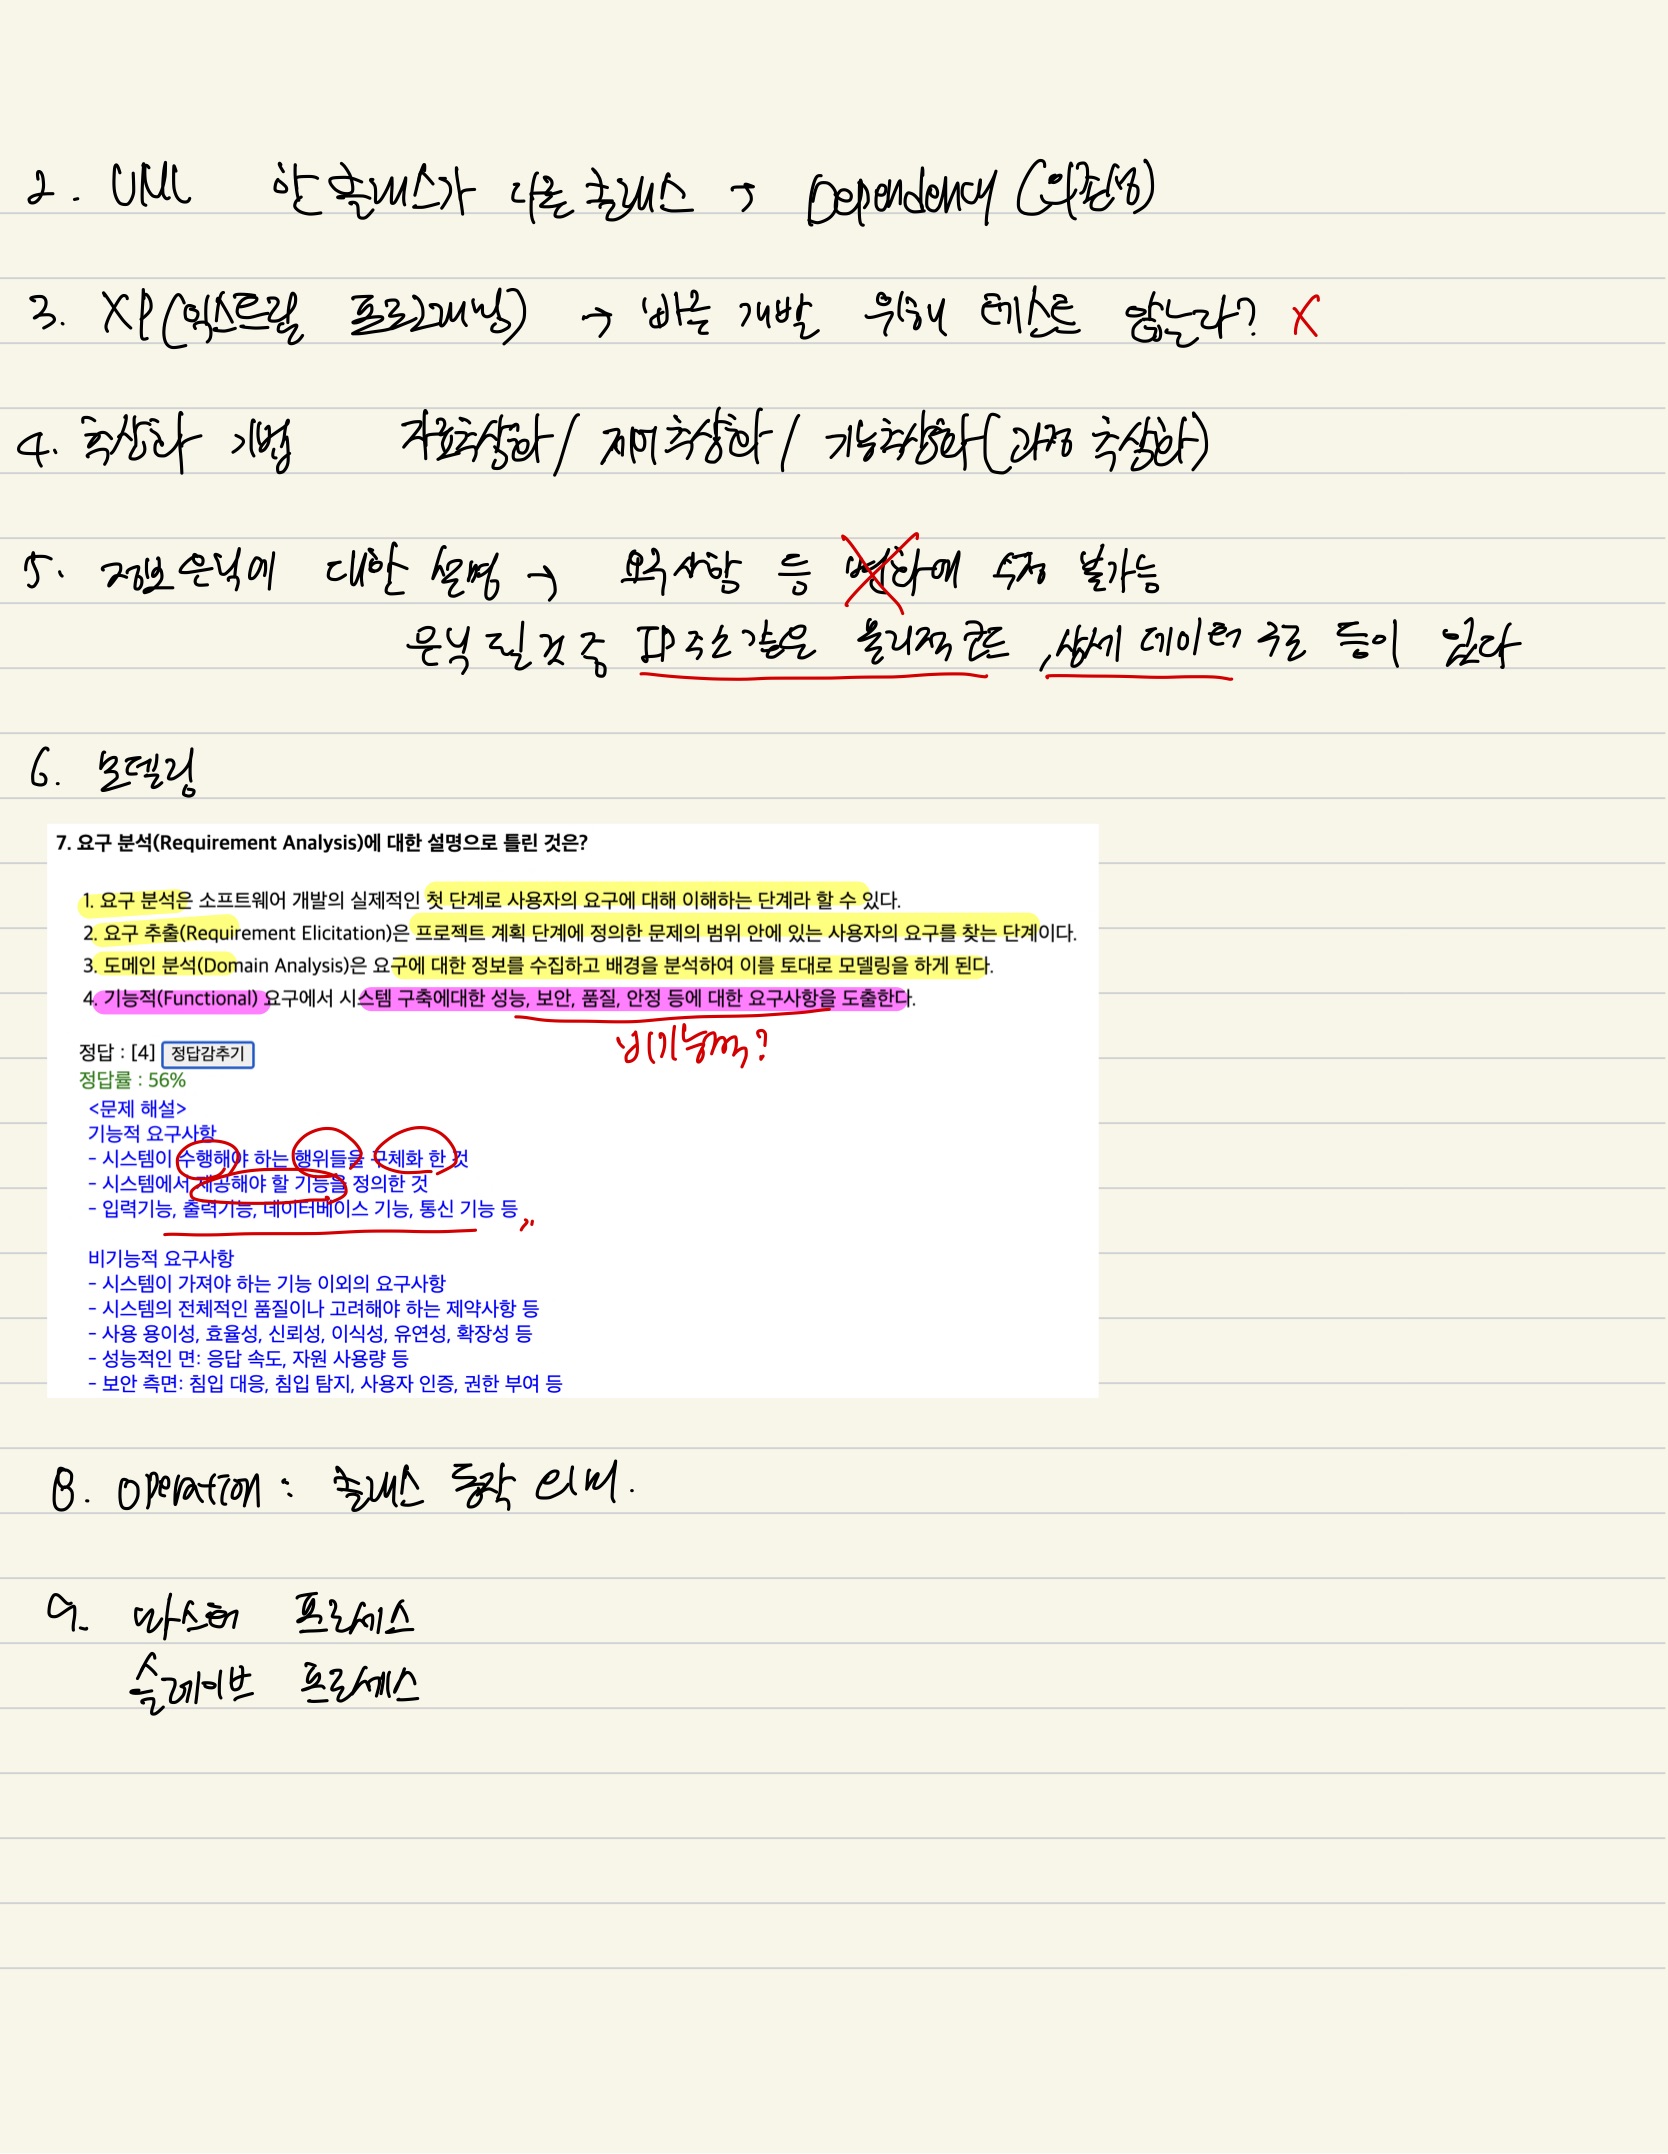 2. UML 한 클래스가 다른 클래스 → Dependency (의존성)
3. XP(익스트림 프로그래밍) → 빠른 개발 위해 테스트 않는다? X
4. 추상화 기법 자료추상화 / 제어추상화 / 기능추상화(과정 추상화)
5. 정보은닉에 대한 설명 → 요구사항 등 변화에 수정 불가능
은닉 될 것 중 IP주소 같은 물리적 코드, 상세 데이터 구조 등이 있다
6. 모델링
7. 요구 분석(Requirement Analysis)에 대한 설명으로 틀린 것은?
1. 요구 분석은 소프트웨어 개발의 실제적인 첫 단계로 사용자의 요구에 대해 이해하는 단계라 할 수 있다.
2. 요구 추출(Requirement Elicitation)은 프로젝트 계획 단계에 정의한 문제의 범위 안에 있는 사용자의 요구를 찾는 단계이다.
3. 도메인 분석(Domain Analysis)은 요구에 대한 정보를 수집하고 배경을 분석하여 이를 토대로 모델링을 하게 된다.
4. 기능적(Functional) 요구에서 시스템 구축에대한 성능, 보안, 품질, 안정 등에 대한 요구사항을 도출한다.
비기능적?
정답 : [4] 정답감추기
정답률 : 56%
<문제 해설>
기능적 요구사항
- 시스템이 수행해야 하는 행위들을 구체화 한 것
- 시스템에서 제공해야 할 기능을 정의한 것
- 입력기능, 출력기능, 데이터베이스 기능, 통신 기능 등
비기능적 요구사항
- 시스템이 가져야 하는 기능 이외의 요구사항
- 시스템의 전체적인 품질이나 고려해야 하는 제약사항 등
- 사용 용이성, 효율성, 신뢰성, 이식성, 유연성, 확장성 등
- 성능적인 면: 응답 속도, 자원 사용량 등
- 보안 측면: 침입 대응, 침입 탐지, 사용자 인증, 권한 부여 등
8. operation : 클래스 동작 의미.
9. 마스터 프로세스
슬레이브 프로세스